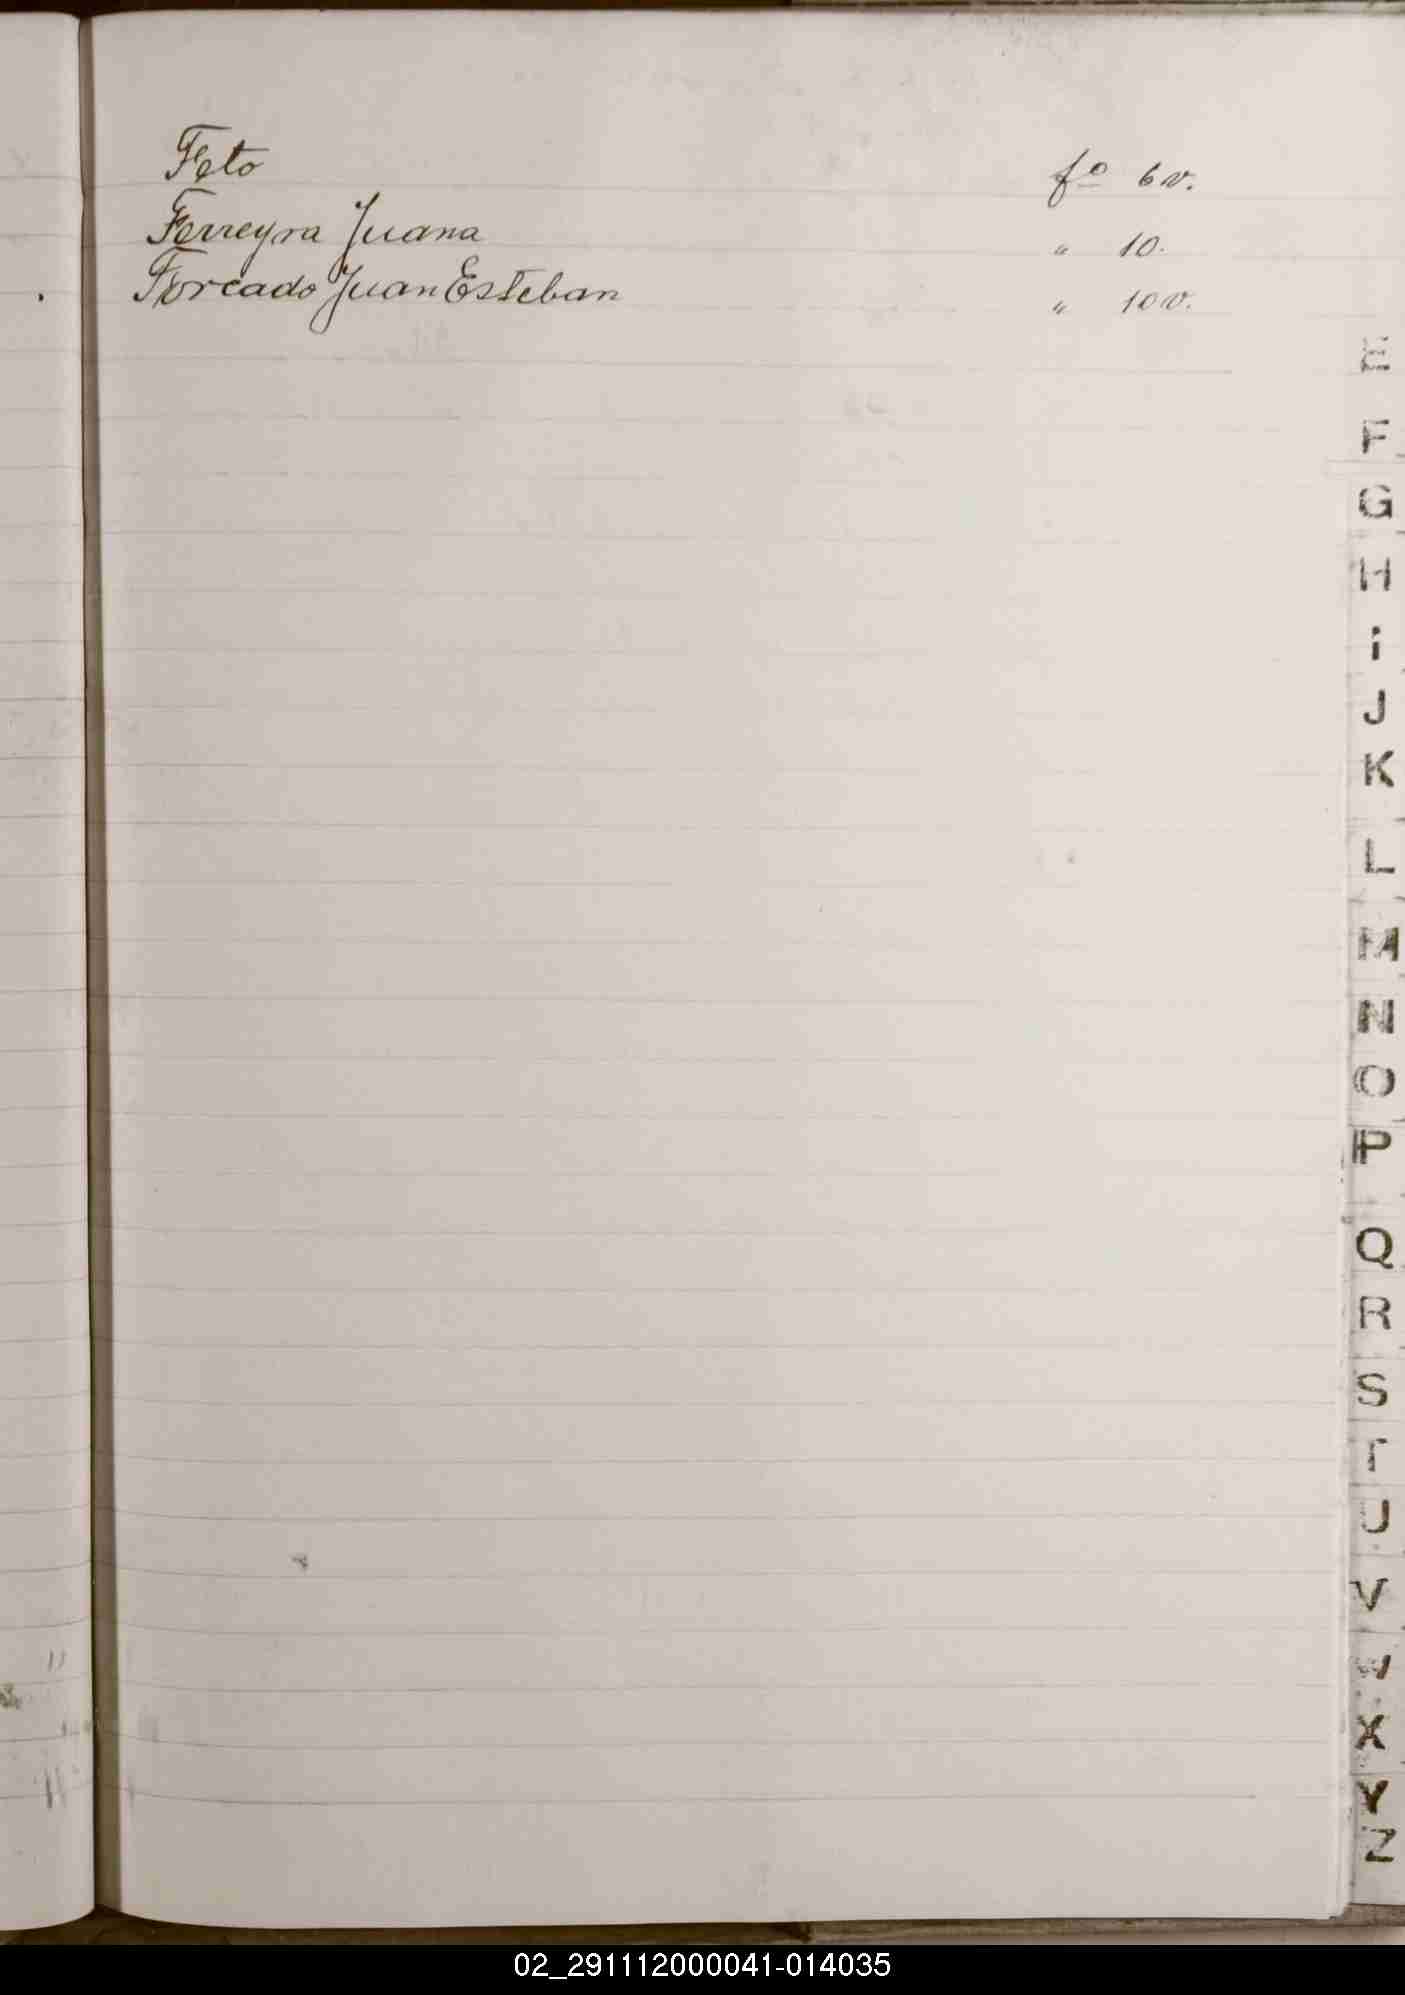 Feto fo 6 v.
Ferreyra Juana " 10.
Forcado Juan Esteban " 10 v.
E
F
G
H
i
J
K
L
M
N
O
P
Q
R
S
T
U
V
W
X
Y
Z
02_291112000041-014035